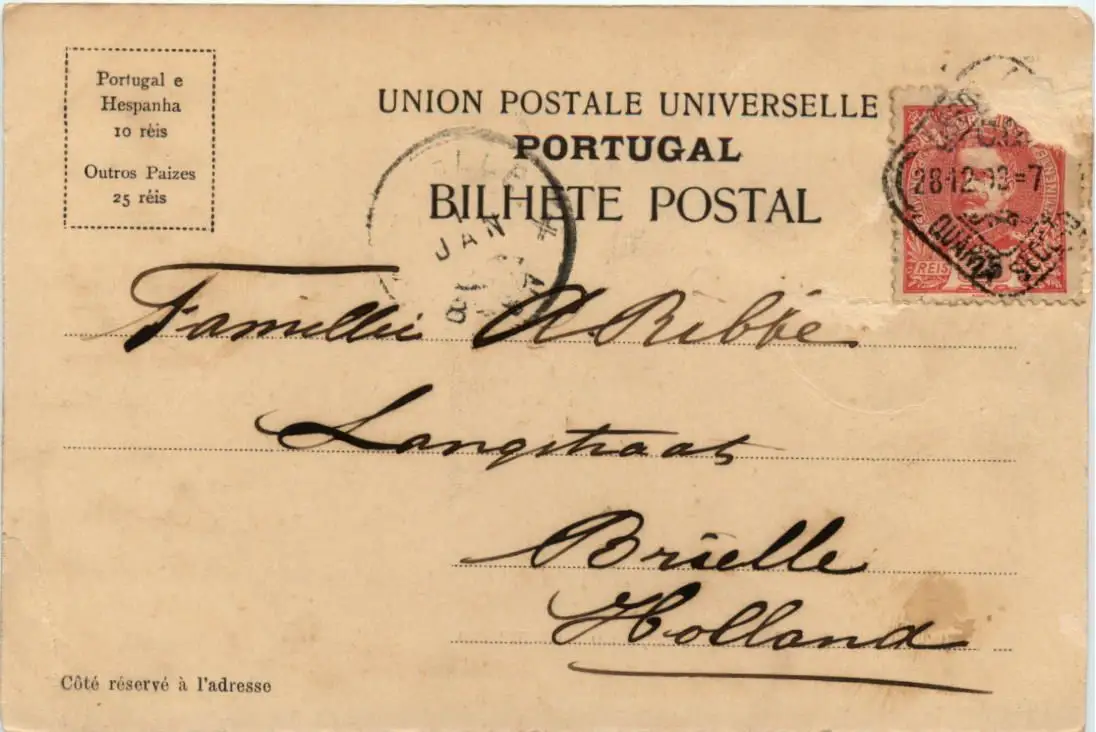 Portugal e
Hespanha
10 réis
Outros Paizes
25 réis
UNION POSTALE UNIVERSELLE
PORTUGAL
BILHETE POSTAL
28-12 03=7
JAN
REIS
25
Famillie A. Ribbé
Langstraat
Brielle
Holland
Côté réservé à l'adresse